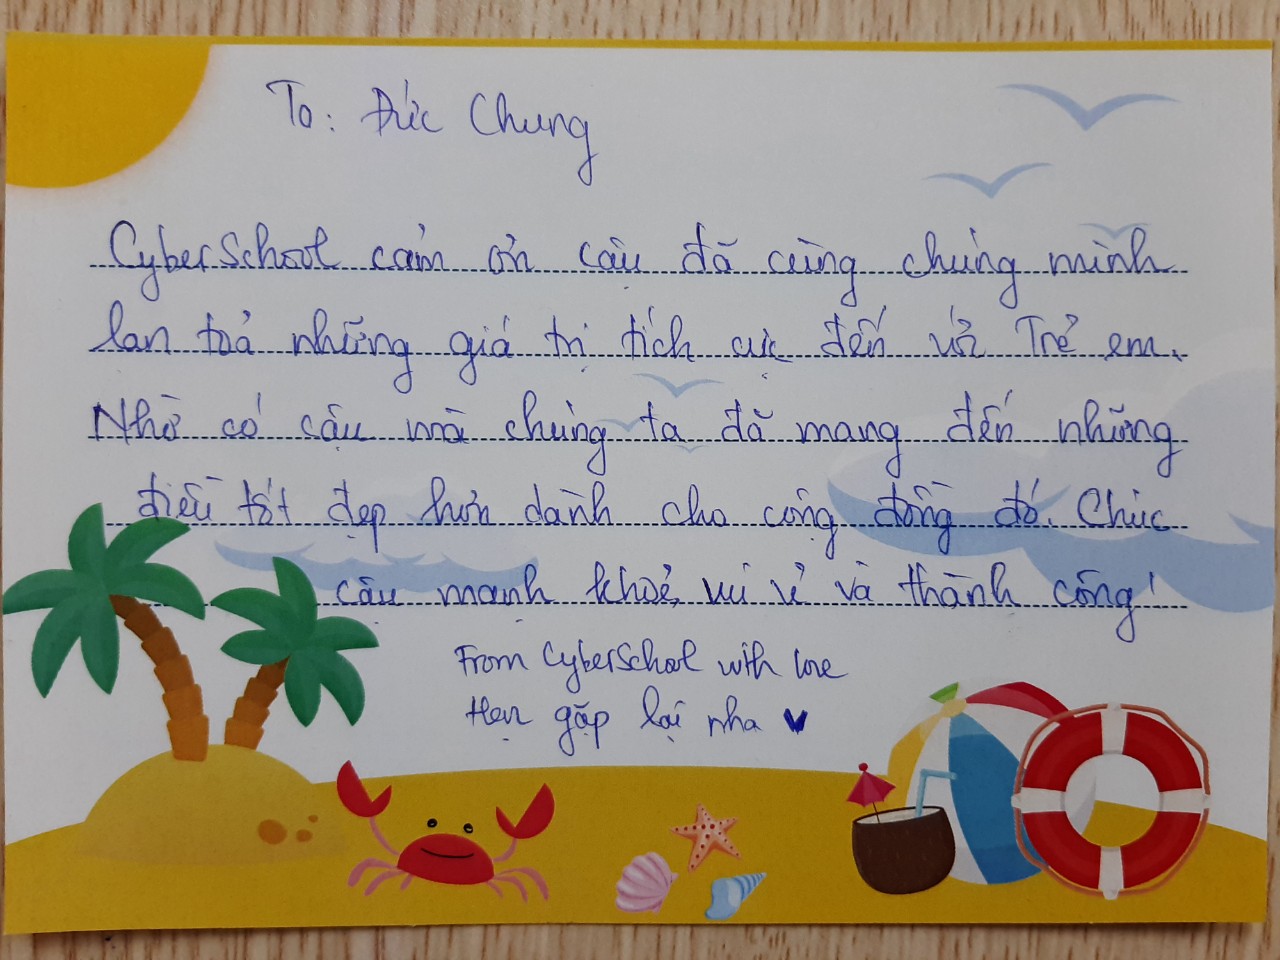 To: Đức Chung
CyberSchool cảm ơn cậu đã cùng chúng mình
lan toả những giá trị tích cực đến với Trẻ em.
Nhờ có cậu mà chúng ta đã mang đến những
điều tốt đẹp hơn dành cho cộng đồng đó. Chúc
cậu mạnh khoẻ, vui vẻ và thành công!
From CyberSchool with love
Hẹn gặp lại nha ♥